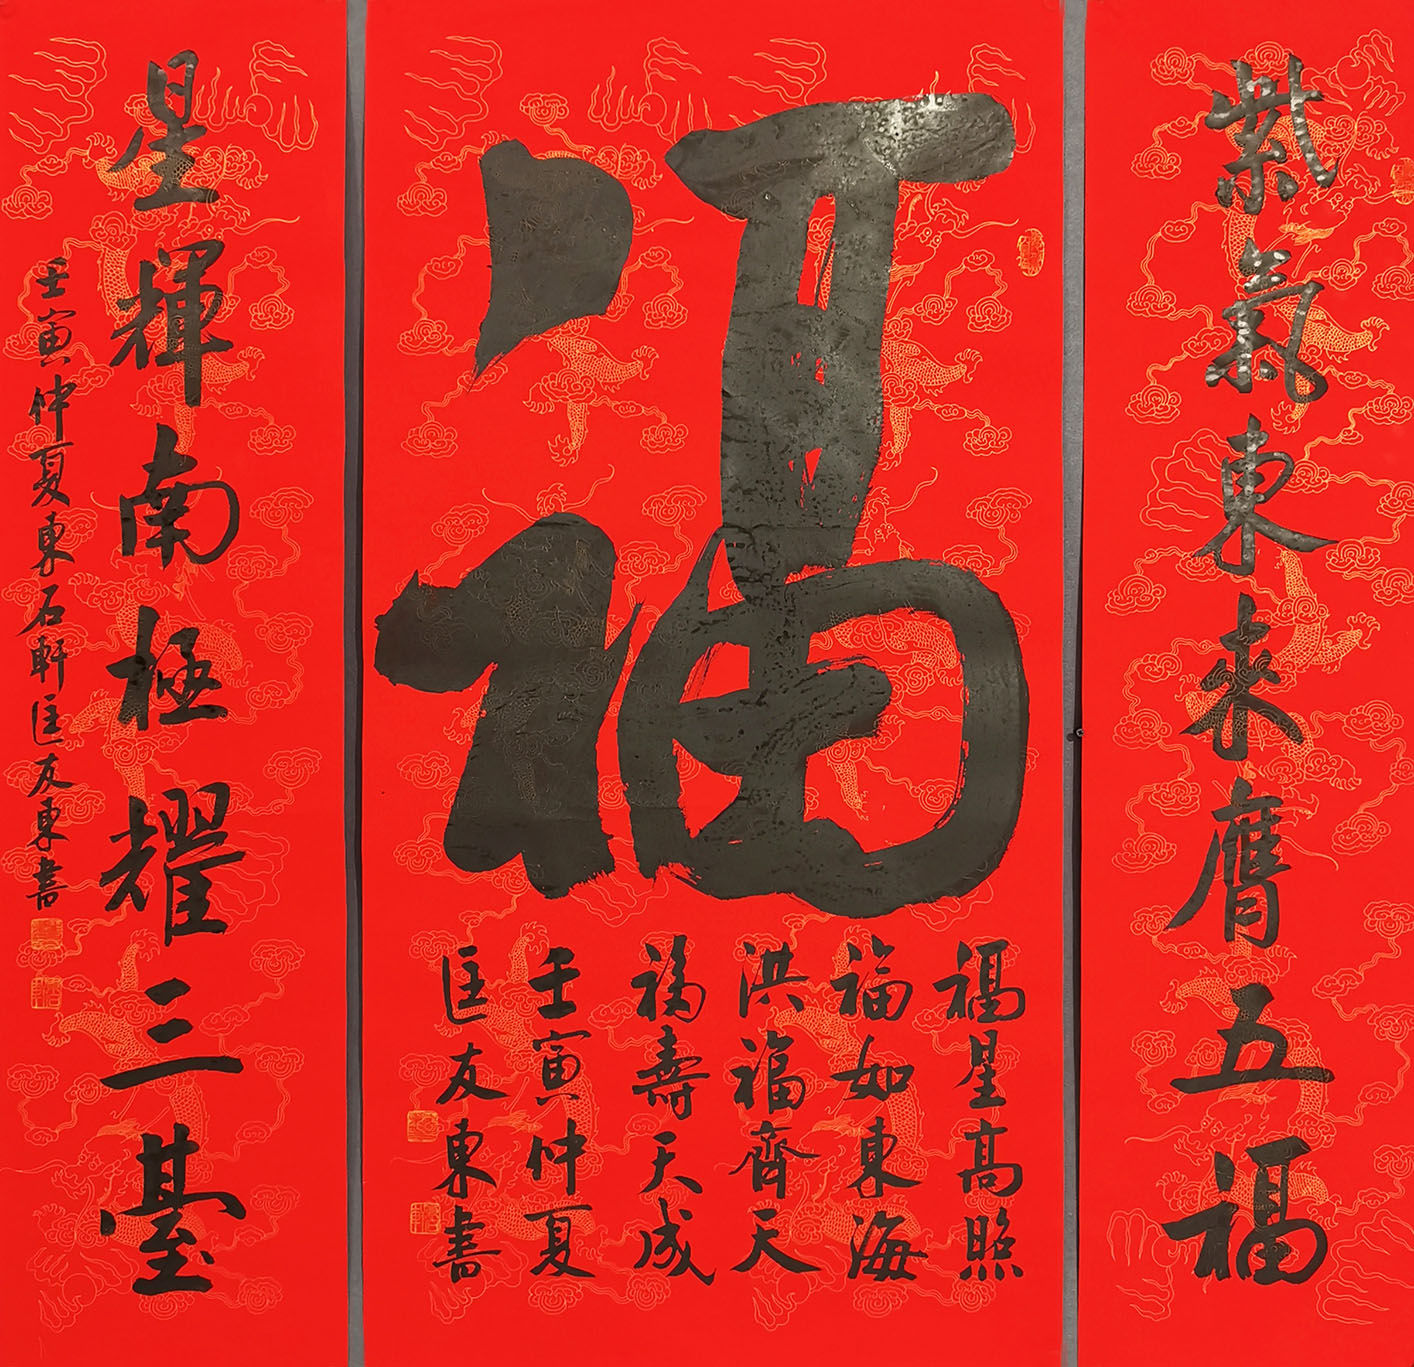 紫氣東來膺五福
福
福星高照
福如東海
洪福齊天
福壽天成
壬寅仲夏
匡友東書
星輝南極耀三臺
壬寅仲夏東石軒匡友東書